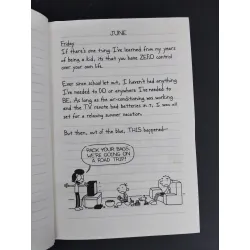 JUNE
Friday
If there's one thing I've learned from my years
of being a kid, it's that you have ZERO control
over your own life.
Ever since school let out, I haven't had anything
I've needed to DO or anywhere I've needed to
BE. As long as the air-conditioning was working
and the TV remote had batteries in it, I was all
set for a relaxing summer vacation.
But then, out of the blue, THIS happened—
PACK YOUR BAGS,
WE'RE GOING ON
A ROAD TRIP!